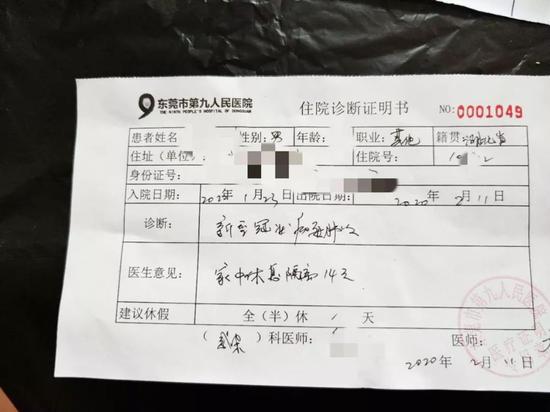 东莞市第九人民医院 住院诊断证明书 NO: 0001049
THE NINTH PEOPLE'S HOSPITAL OF DONGGUAN
患者姓名 性别: 男 年龄: 职业: 其他 籍贯: 湖北省
住址(单位) 住院号:
身份证号:
入院日期: 2020年1月23日 出院日期: 2020年2月11日
诊断: 新型冠状病毒肺炎
医生意见: 家中休息隔离14天
建议休假 全(半)休 天
( )科医师: 医师:
2020年2月11日
东莞市第九人民医院